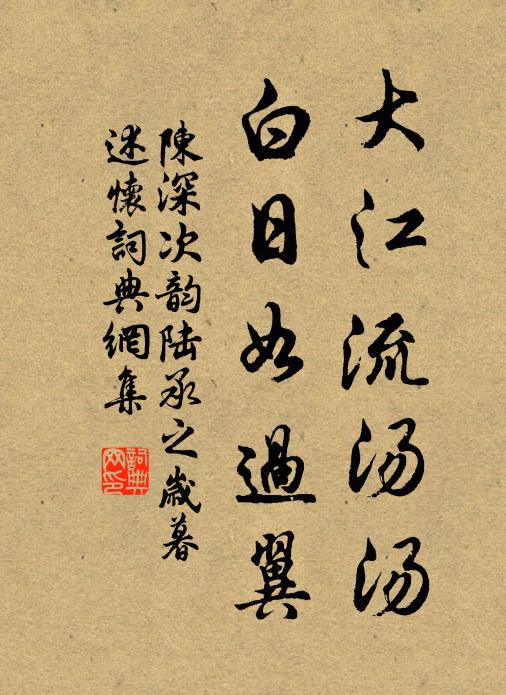 大江流汤汤
白日如過翼
陳深次韵陆承之歲暮
述懷詞典網集
詞典
网印